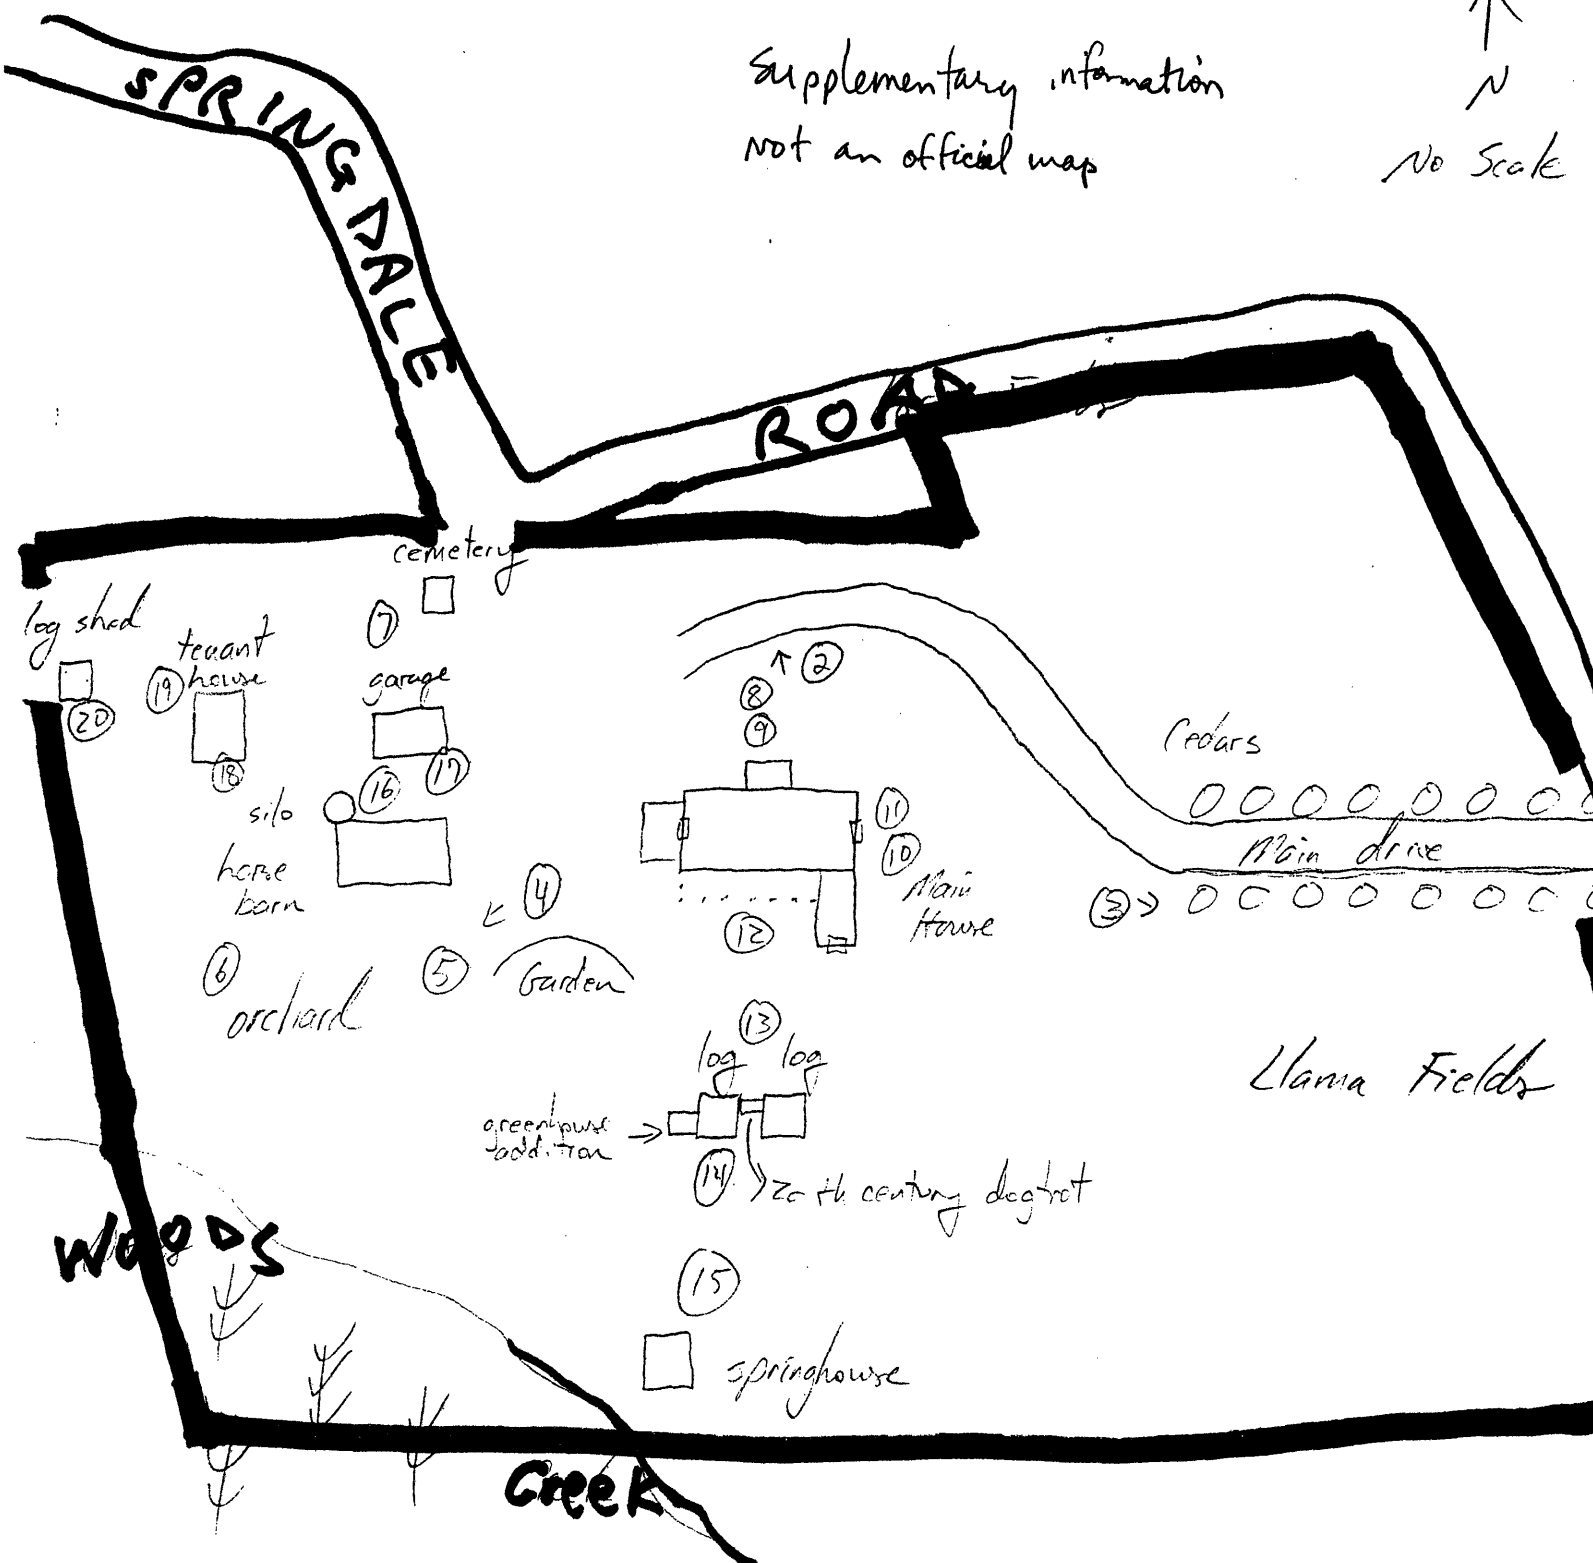 Supplementary information
Not an official map
N
No Scale
SPRINGDALE
ROAD
cemetery
log shed
7
tenant
house
19
20
18
garage
17
16
silo
horse
barn
2
8
9
11
10
Main
House
12
Cedars
Main drive
3
4
5
Garden
6
orchard
13
log
log
greenhouse
addition
14
20th century dogtrot
Llama Fields
15
springhouse
WOODS
Creek